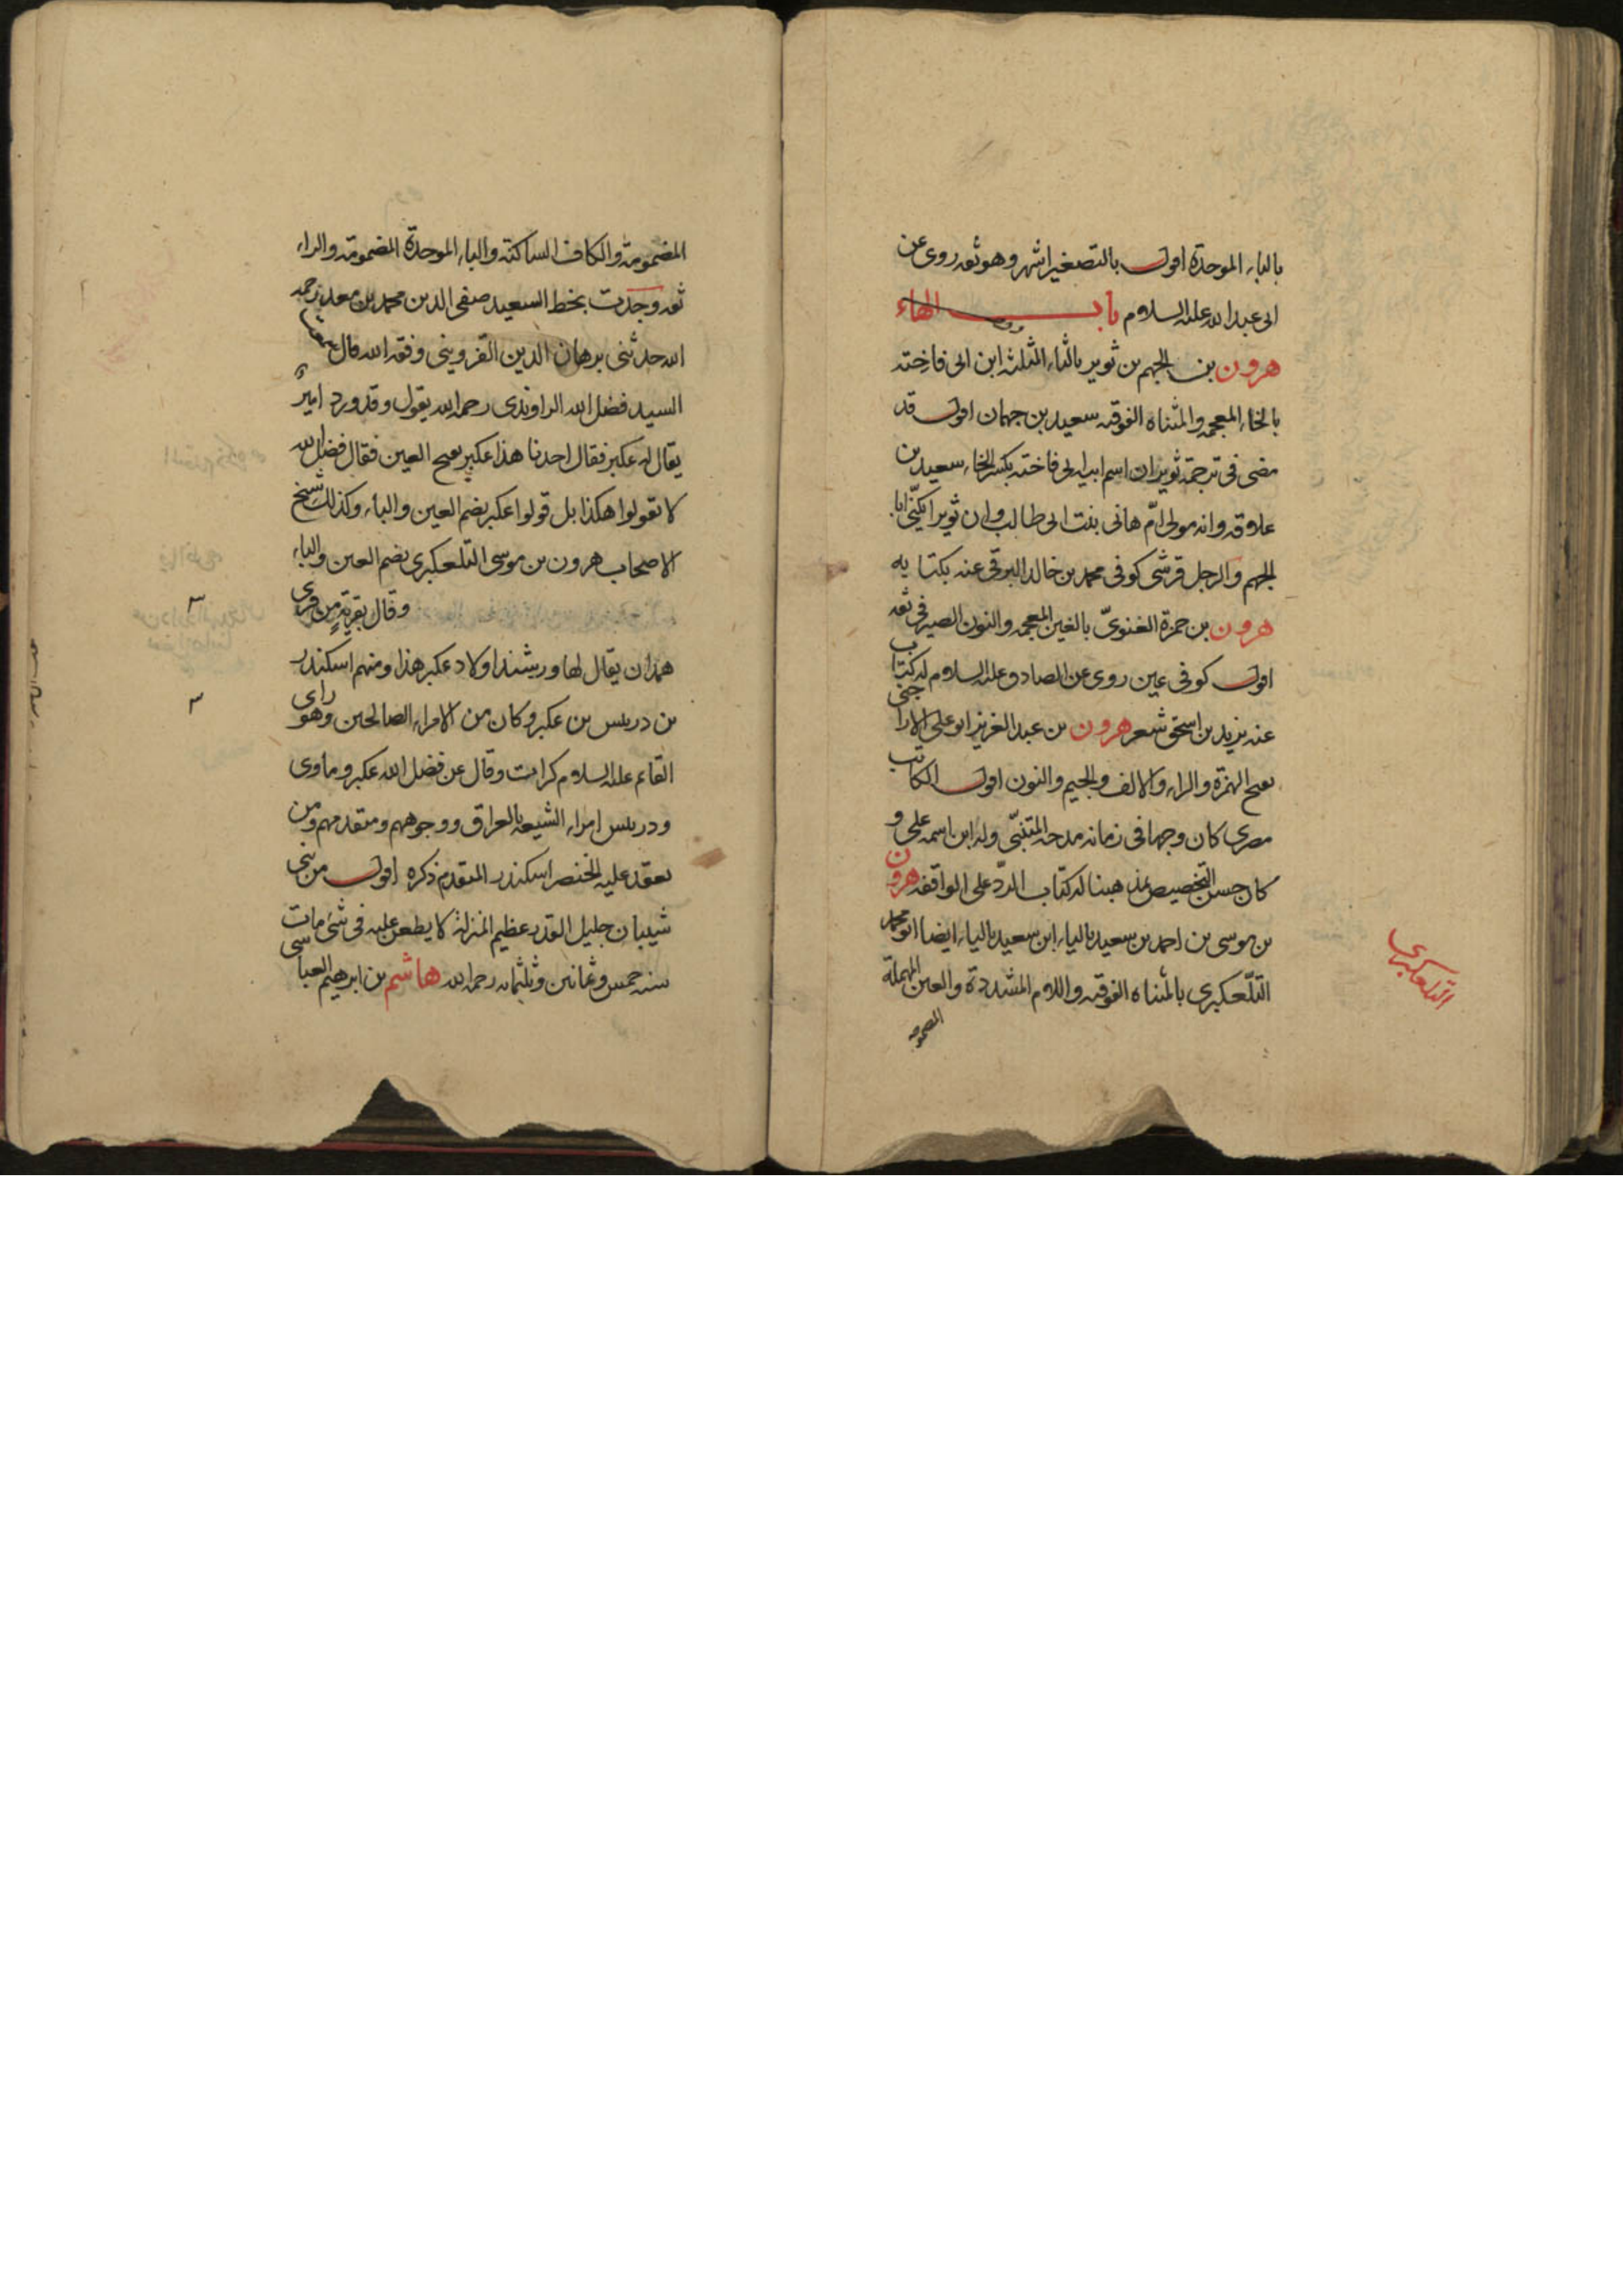 بالباء الموحدة اقول بالتصغير اشهر وهو ثقه روى عن
ابى عبد الله عليه السلام باب الهاء
هرون بن الجهم بن ثوير بالثاء المثلثه ابن ابى فاخته
بالخاء المعجمه والمثناه الفوقيه سعيد بن جهمان اقول قد
مضى فى ترجمة ثوير ان اسم ابيه ابى فاخته بكسر الخاء سعيد بن
علاقه وانه مولى ام هانى بنت ابى طالب وان ثويرا يكنى ابا
الجهم والرجل قرشى كوفى محمد بن خالد البرقى عنه بكتابه
هرون بن حمزة الغنوىّ بالغين المعجمه والنون الصيرفى ثقه
اقول كوفى عين روى عن الصادق عليه السلام له كتاب
عنه يزيد بن اسحق شعر هرون بن عبد العزيز ابو على الاراجنى
بفتح الهمزة والراء والالف والجيم والنون اقول الكاتب
مصرى كان وجها فى زمانه مدحه المتنبّى وله ابن اسمه على و
كان حسن التخصيص بمذهبنا له كتاب الردّ على الواقفه هرون
بن موسى بن احمد بن سعيد بالياء ابن سعيد بالياء ايضا ابو محمد
التلّعكبرى بالمثناه الفوقيه واللام المشددة والعين المهملة
المضمومه
التلعكبرى
المضمومة والكاف الساكنة والباء الموحدة المضمومة والراء
ثقه وجدت بخط السعيد صفى الدين محمد بن معد رحمه
الله حدثنى برهان الدين القزوينى وفقه الله قال سمعت
السيد فضل الله الراوندى رحمه الله يقول وقد ورد امير
يقال له عكبر فقال احدنا هذا عكبر بفتح العين فقال فضل الله
لا تقولوا هكذا بل قولوا عكبر بضم العين والباء وكذلك شيخ
الاصحاب هرون بن موسى التلعكبرى بضم العين والباء
وقال بقرية من قرى
همدان يقال لها ورشند اولاد عكبر هذا ومنهم اسكندر
بن دربيس بن عكبر وكان من الامراء الصالحين وهو راى
القائم عليه السلام كرامت وقال عن فضل الله عكبر وماوى
ودربيس امراء الشيعه بالعراق ووجوههم ومتقدمهم ومن
يعقد عليه الخنصر اسكندر المتقدم ذكره اقول من بنى
شيبان جليل القدر عظيم المنزلة لا يطعن عليه فى شئ مات
سنه خمس وثمانين وثلثمائه رحمه الله هاشم بن ابرهيم العباسى